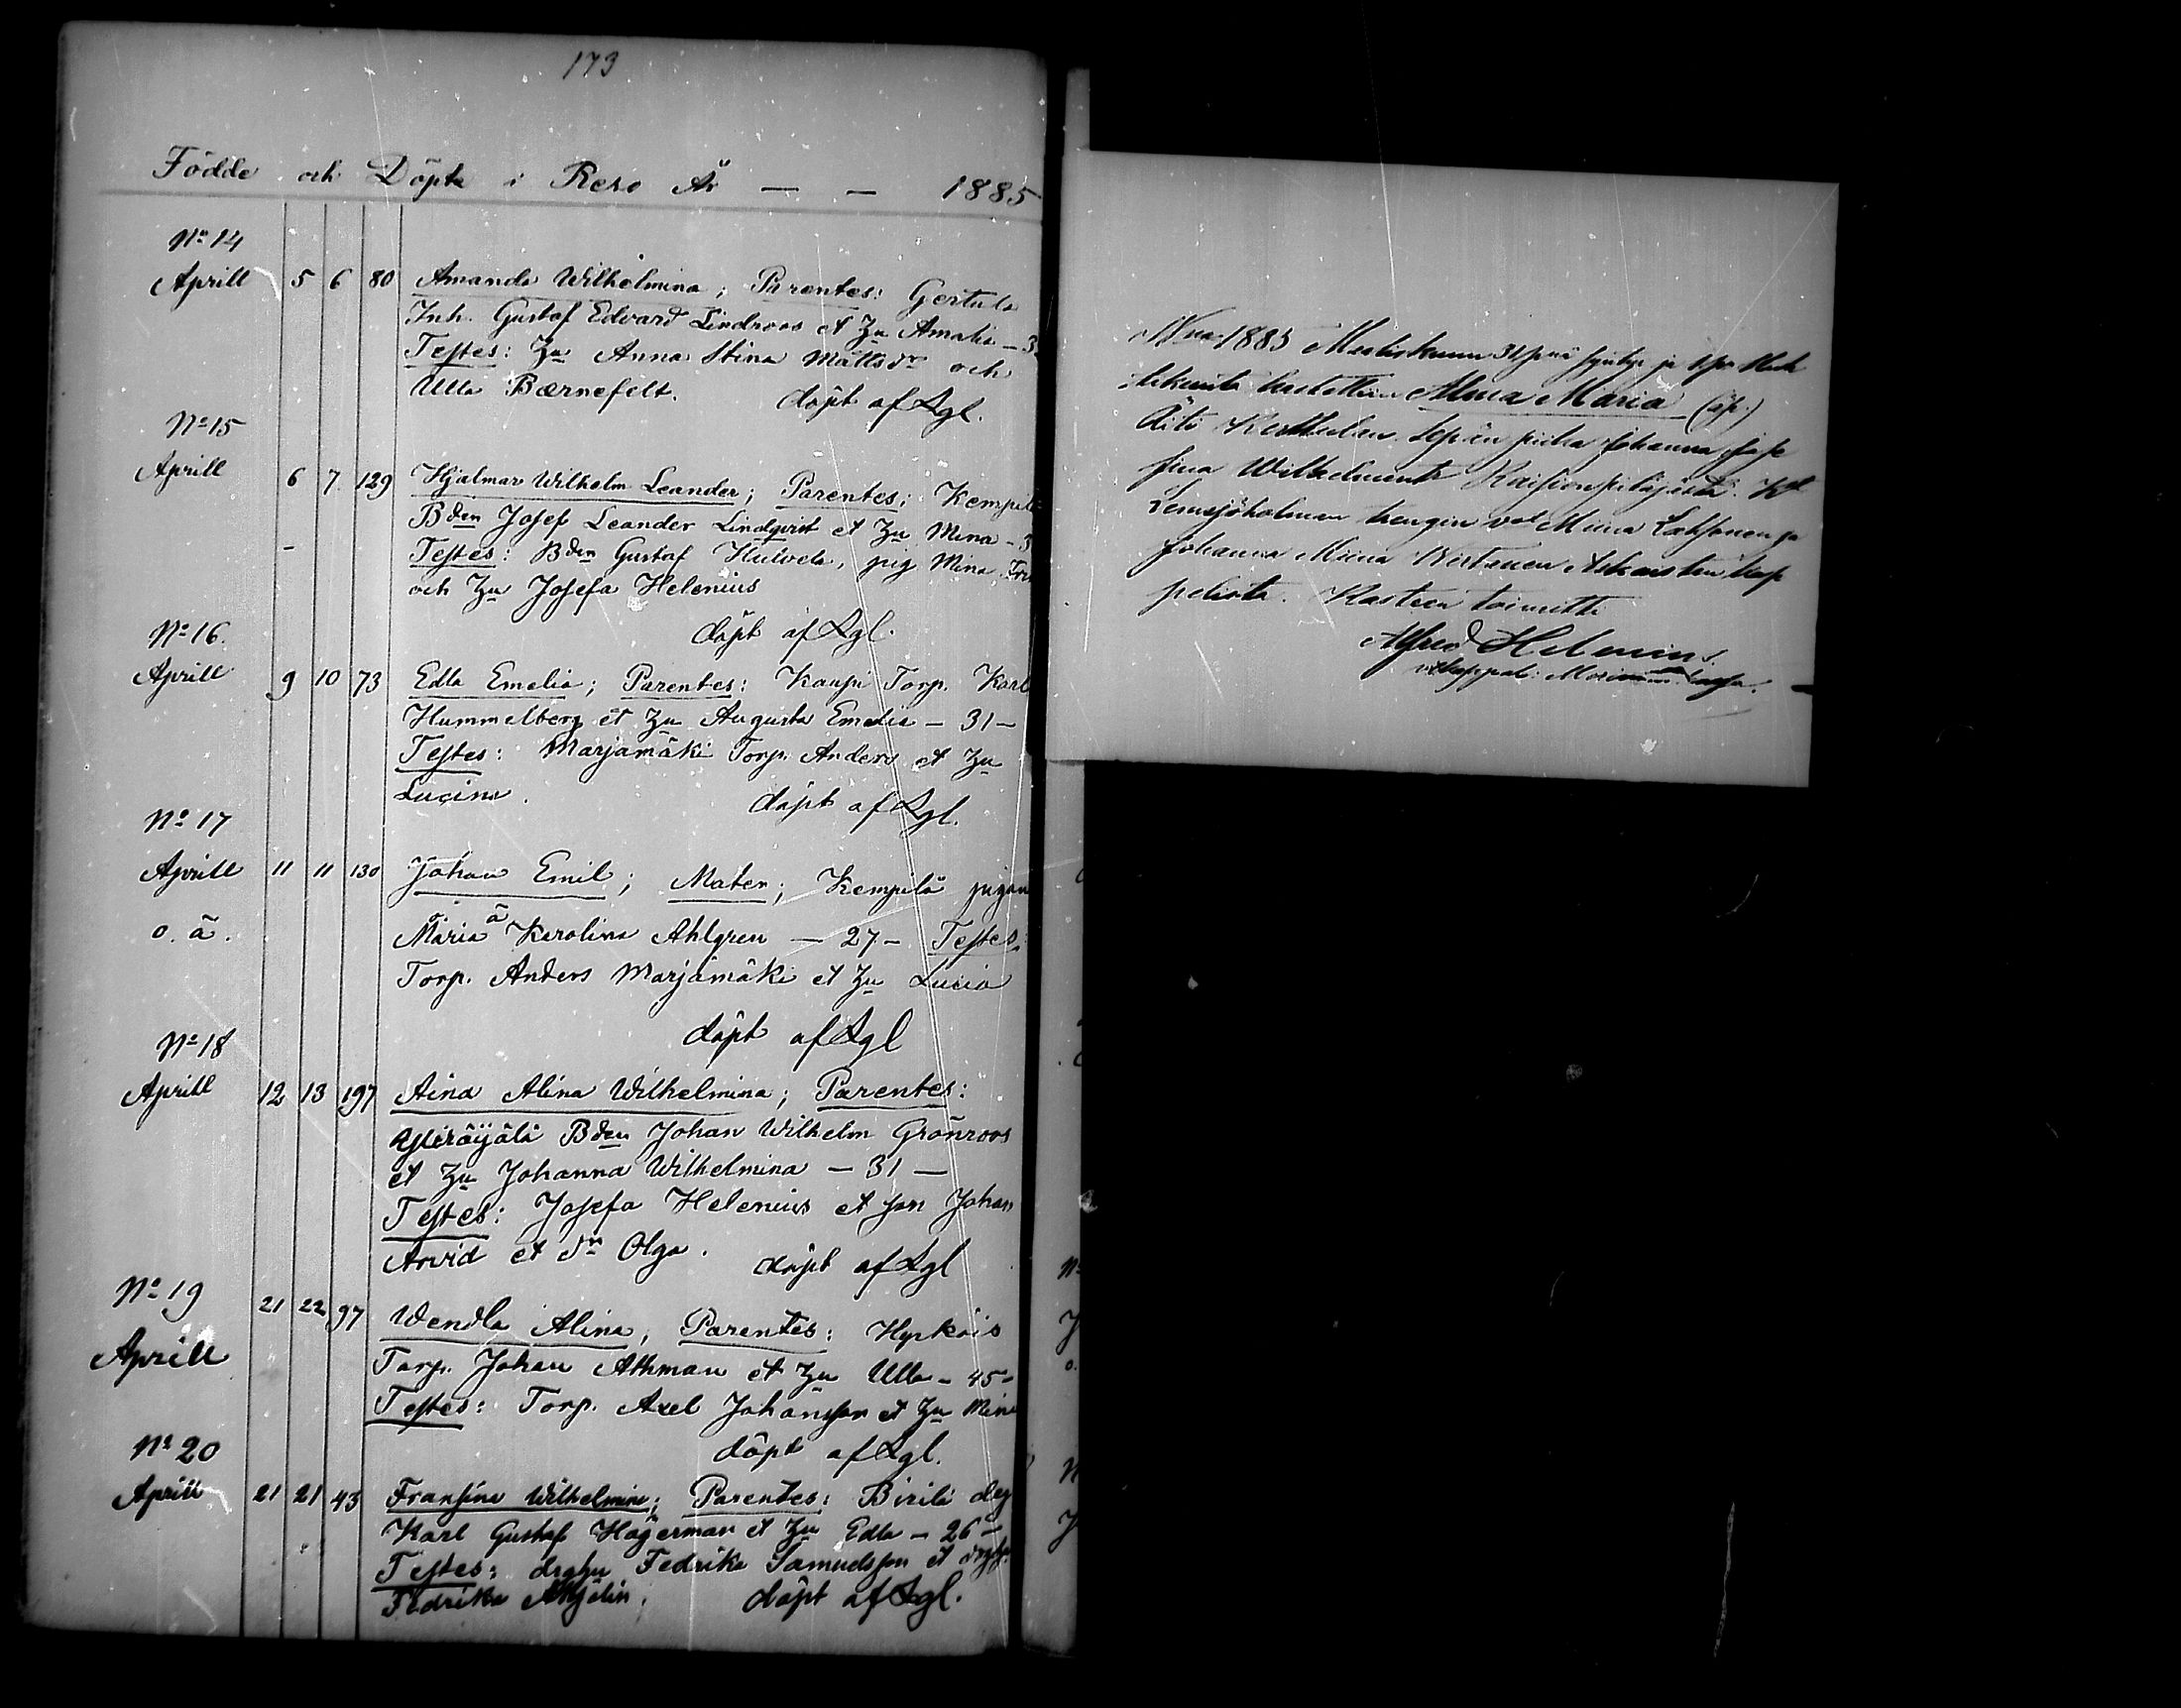 173
Födde och Döpte i Reso År — — 1885
No 14
Aprill 5 6 80 Amanda Wilhelmina; Parentes: Gertula
Inh. Gustaf Edvard Lindroos et Hu Amalia – 3
Testes: Hu Anna Stina Mattsdr och
Ulla Bærnefelt. döpt af Lgl.
No 15
Aprill 6 7 129 Hjalmar Wilhelm Leander; Parentes: Kempilä
Bden Josef Leander Lindqvist et Hu Mina – 3
Testes: Bden Gustaf Hulvela, pig Mina
och Hu Josefa Helenius
döpt af Lgl.
No 16.
Aprill 9 10 73 Edla Emelia; Parentes: Kaupi Torp. Karl
Hummelberg et Hu Augusta Emelia – 31 –
Testes: Marjamäki Torp. Anders et Hu
Lucina. döpt af Lgl.
No 17
Aprill 11 11 130 Johan Emil; Mater; Kempilä pigan
o. ä. Maria Karolina Ahlgren — 27 – Testes:
Torp. Anders Marjamäki et Hu Lucia
döpt af Lgl
No 18
Aprill 12 13 197 Aina Alina Wilhelmina; Parentes:
Bden Johan Wilhelm Grönroos
et Hu Johanna Wilhelmina — 31 —
Testes: Josefa Helenius et son Johan
Arvid et dr Olga. döpt af Lgl
No 19
Aprill 21 22 97 Wendla Alina; Parentes: Hyrköis
Torp. Johan Athman et Hu Ulla – 45 –
Testes: Torp. Axel Johansson et Hu Mina
döpt af Lgl.
No 20
Aprill 21 21 43 Fransina Wilhelmina; Parentes: Birilä drg
Karl Gustaf Hagerman et Hu Edla – 26 –
Testes: drghu Fedrika Samuelsson et
Fedrika döpt af Lgl.
Wna 1885 Maaliskuun 31 pnä syntyi ja 1 pr Huh
tikuuta kastettiin Alma Maria (äp.)
Äiti Kerttulan Sepän piika Johanna Jose
fina Wilhelmintr Raision pitäjästä. K.
Lemsjöholman hengin vat Miina Laksonen ja
Johanna Miina Virtanen Askaisten kap
pelista. Kasteen toimitti
Alfred Helenius.